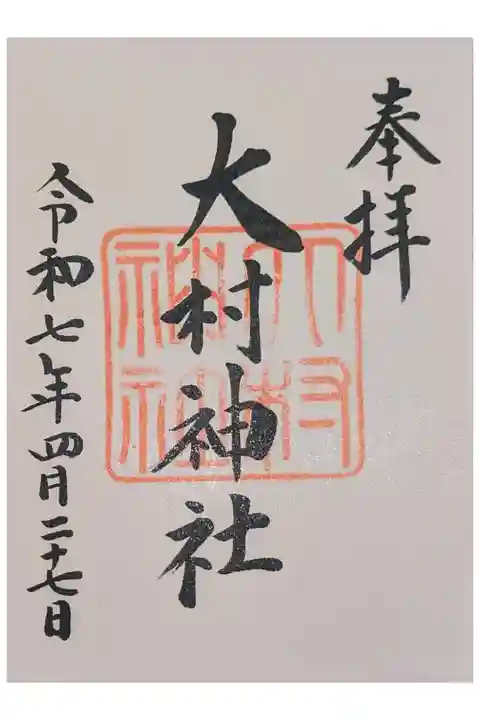 奉拝
大村神社
令和七年四月二十七日
大村
神社